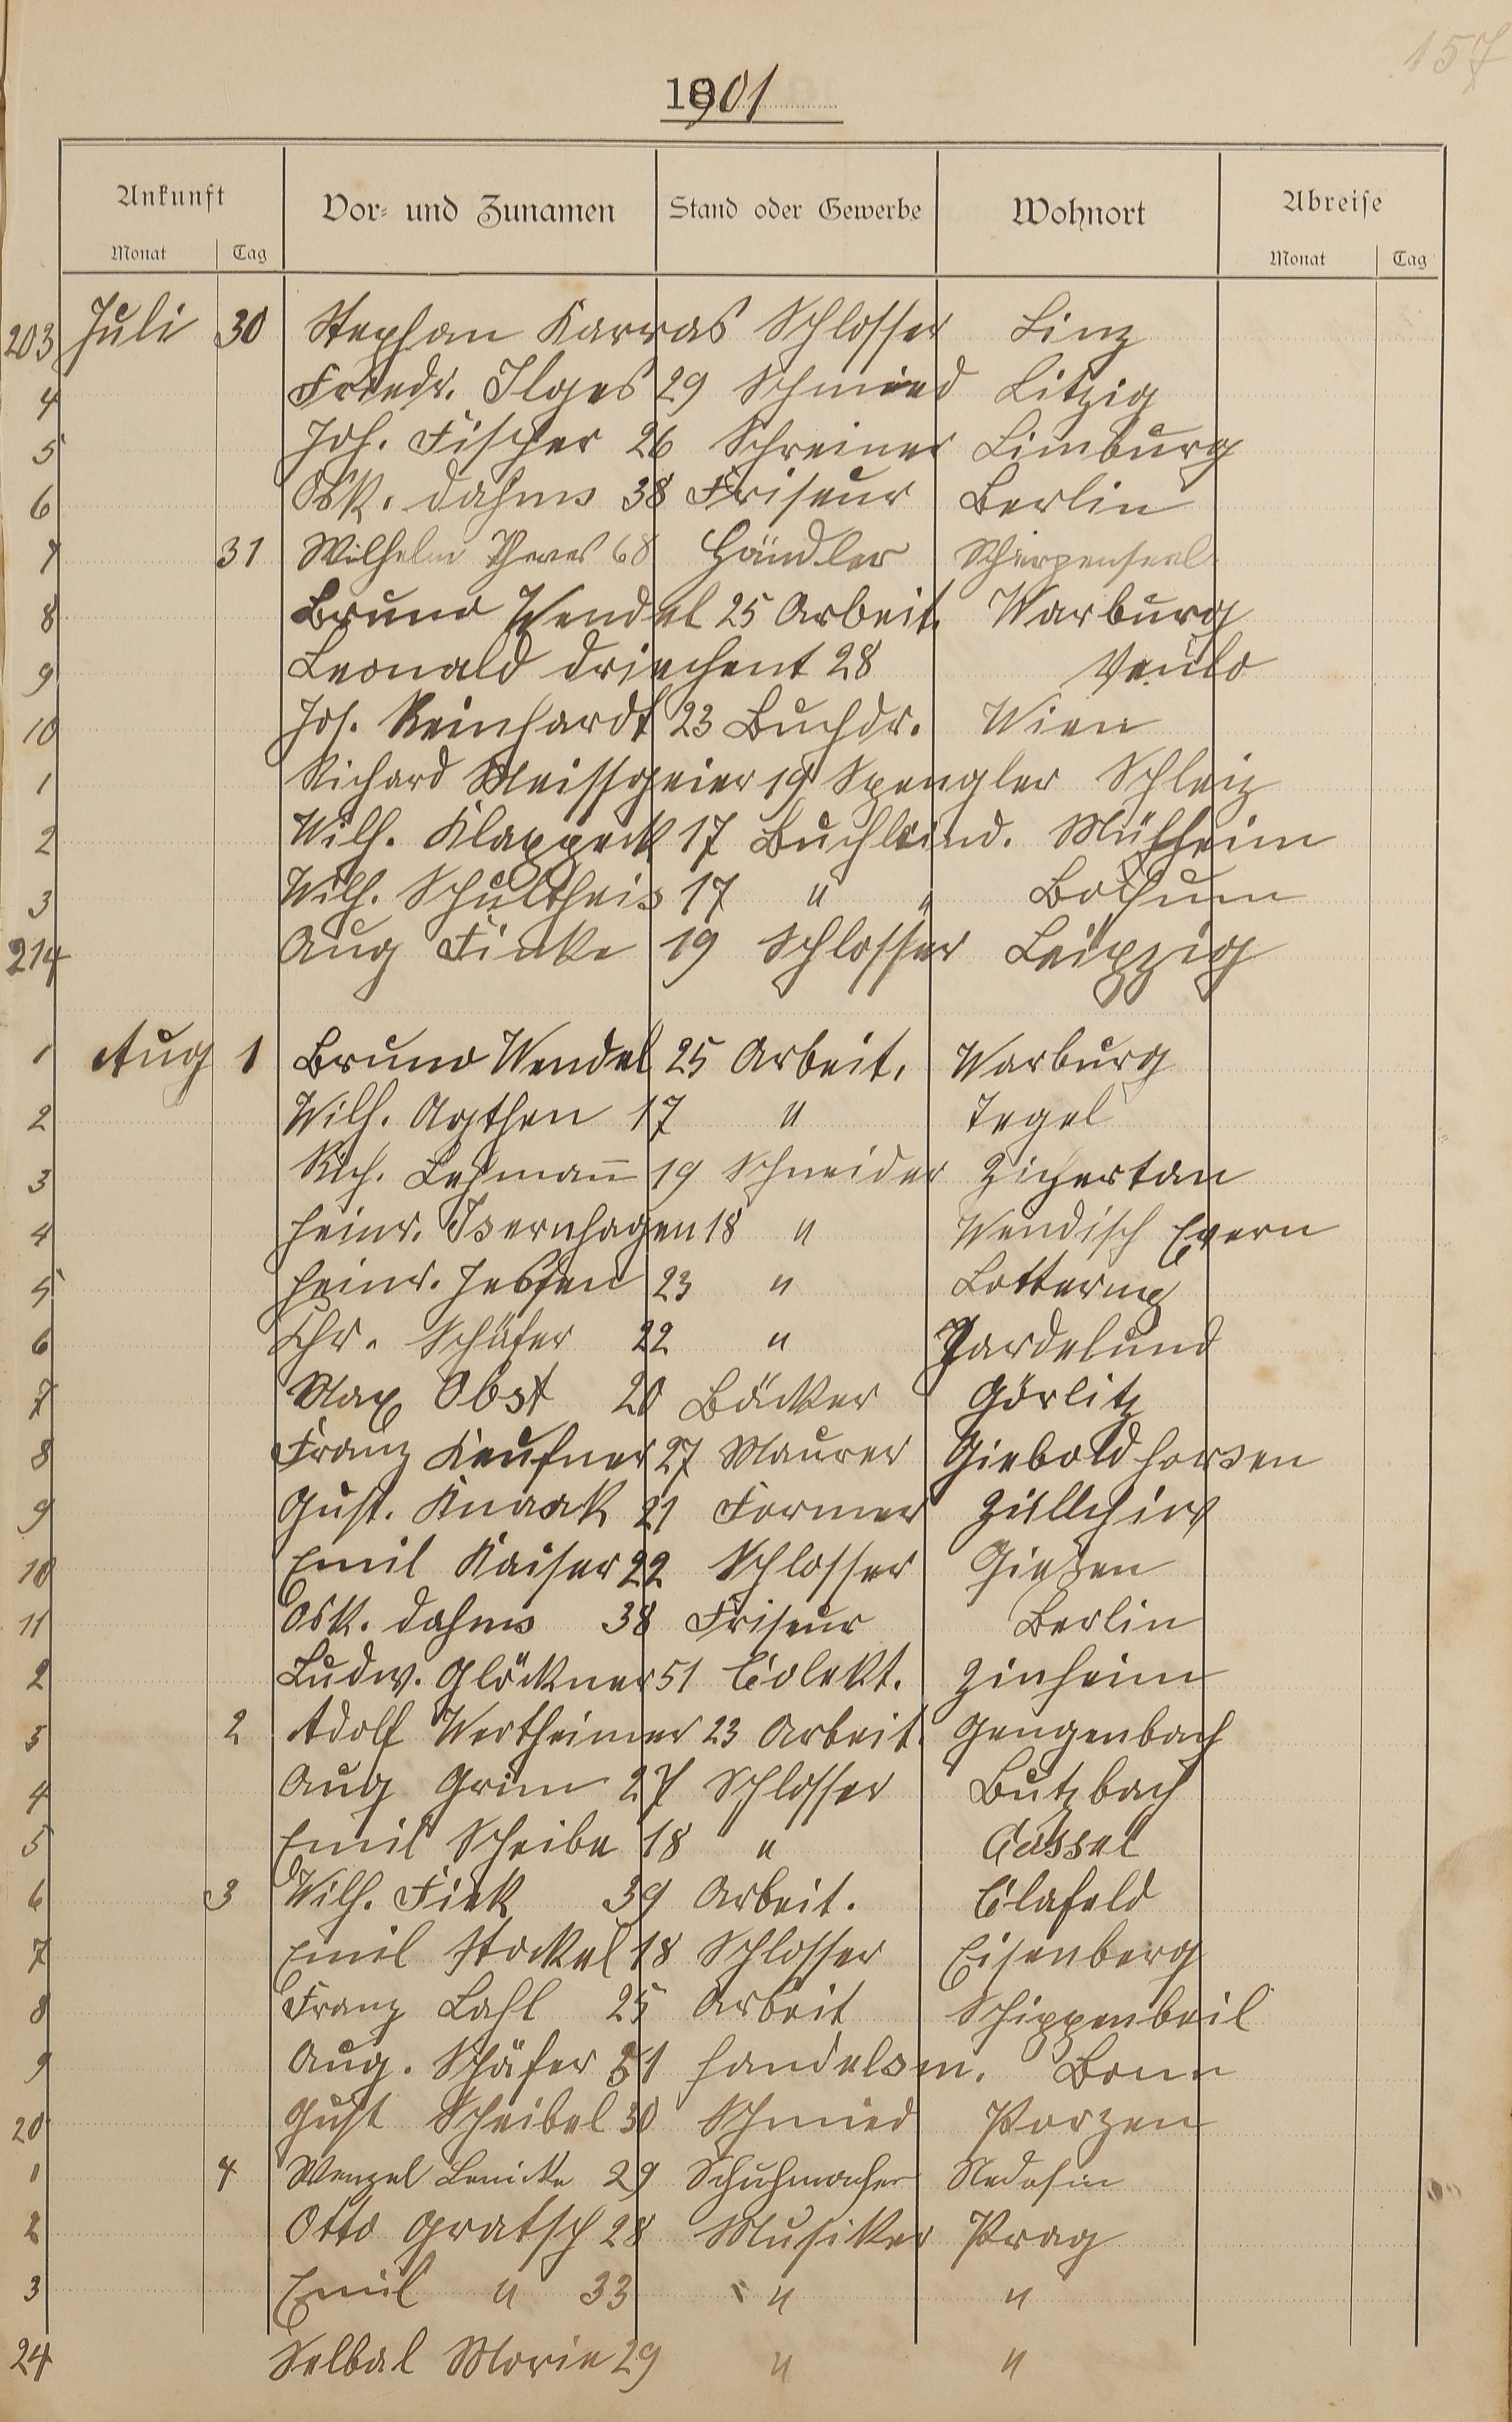 157
1901
Ankunft Vor- und Zunamen Stand oder Gewerbe Wohnort Abreise
Monat Tag Monat Tag
203 Juli 30 Stephan Karras Schlosser Linz
4 Friedr. Ilges 29 Schmied Litzig
5 Joh. Fischer 26 Schreiner Limburg
6 Osk. Dahms 38 Friseur Berlin
7 31 Wilhelm 68 Händler Scherpenseel
8 Bruno Wendel 25 Arbeit. Warburg
9 Leonald 28 Venlo
10 Jos. Reinhardt 23 Buchdr. Wien
1 Richard Meissgeier 19 Spengler Schleiz
2 Wilh. Klappeck 17 Buchbind. Mülheim
3 Wilh. Schultheis 17 " " Bochum
214 Aug Finke 19 Schlosser Leipzig
1 Aug 1 Bruno Wendel 25 Arbeit. Warburg
2 Wilh. Agthen 17 " Tegel
3 Rich. Lehmann 19 Schneider
4 Heinr. Isernhagen 18 " Wendisch Evern
5 Heinr. Jessen 23 "
6 Chr. Schäfer 22 " Jardelund
7 Max Obst 20 Bäcker Görlitz
8 Franz Keufner 27 Maurer Gieboldhorsen
9 Gust. Knaak 21 Former Züllchin
10 Emil Kaiser 22 Schlosser Giesen
11 Osk. Dahms 38 Friseur Berlin
2 Ludw. Glöckner 51 Colekt. Zinheim
3 2 Adolf Wertheimer 23 Arbeit. Gengenbach
4 Aug Grim 27 Schlosser Butzbach
5 Emil Scheibe 18 " Cassel
6 3 Wilh. Fink 39 Arbeit. Eilafeld
7 Emil Stockel 18 Schlosser Eisenberg
8 Franz Lahl 25 Arbeit Schippenbeil
9 Aug. Schäfer 51 Handelsm. Bonn
20 Gust Scheibel 30 Schmied Porzen
1 4 Wenzel 29 Schuhmacher
2 Otto Gratsch 28 Musiker Prag
3 Emil " 33 " "
24 Selbal Marie 29 " "